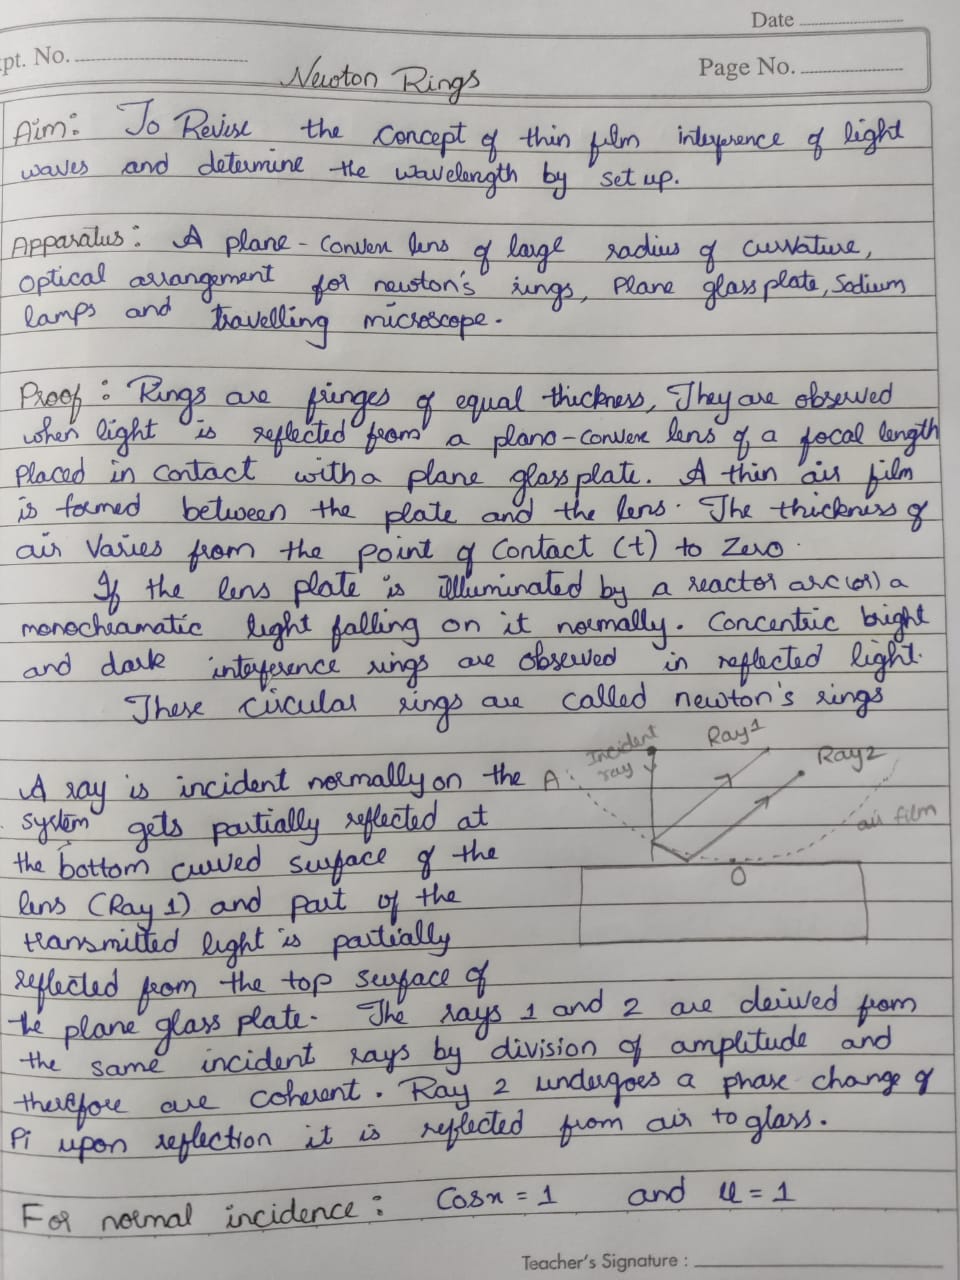 Date
pt. No.
Newton Rings
Page No.
Aim: To Revise the concept of thin film interference of light
waves and determine the wavelength by set up.
Apparatus: A plane-convex lens of large radius of curvature,
optical arrangement for newton's rings, plane glass plate, Sodium
lamps and travelling microscope.
Proof: Rings are fringes of equal thickness, They are observed
when light is reflected from a plano-convex lens of a focal length
placed in contact with a plane glass plate. A thin air film
is formed between the plate and the lens. The thickness of
air varies from the point of contact (t) to zero.
If the lens plate is illuminated by a reactor arc (or) a
monochramatic light falling on it normally. Concentric bright
and dark interference rings are observed in reflected light.
These circular rings are called newton's rings
Incident
ray
Ray 1
Ray 2
A
air film
O
A ray is incident normally on the
system gets partially reflected at
the bottom curved surface of the
lens (Ray 1) and part of the
transmitted light is partially
reflected from the top surface of
the plane glass plate. The rays 1 and 2 are derived from
the same incident rays by division of amplitude and
therefore are coherent. Ray 2 undergoes a phase change of
Pi upon reflection it is reflected from air to glass.
For normal incidence: Cosx = 1 and u = 1
Teacher's Signature :